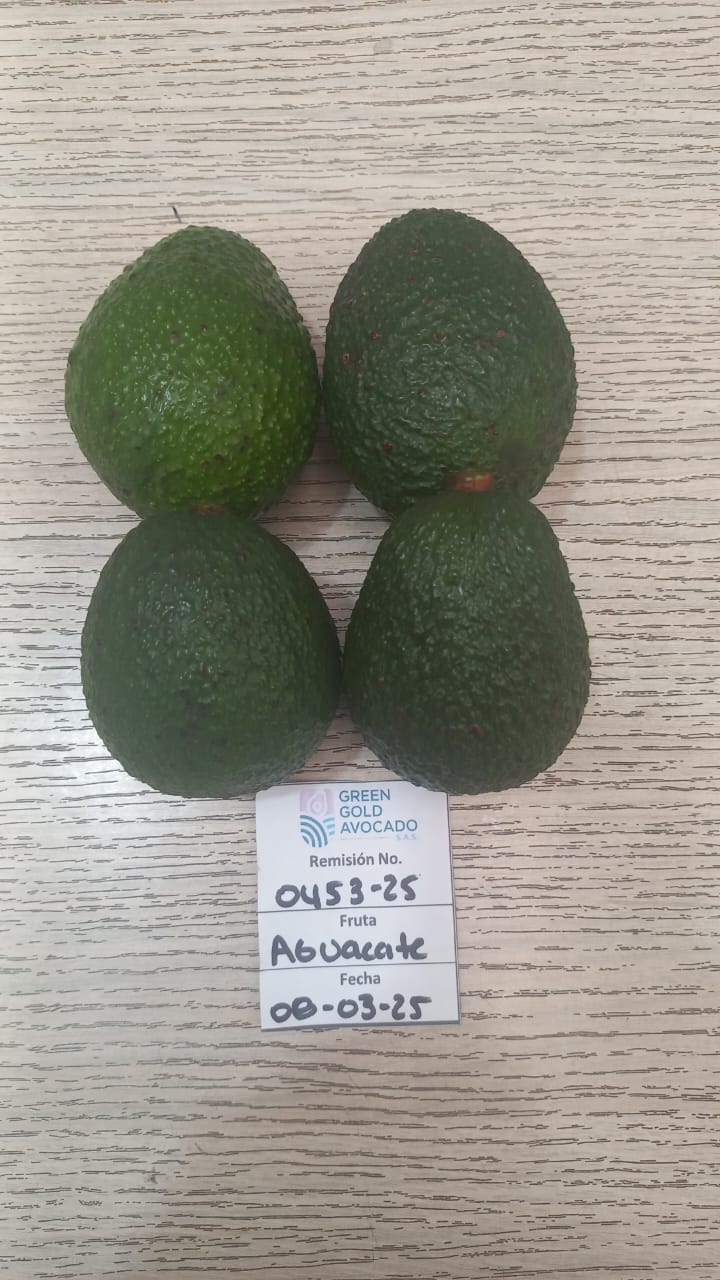 GREEN
GOLD
AVOCADO
S.A.S.
Remisión No.
0453-25
Fruta
Aguacate
Fecha
08-03-25